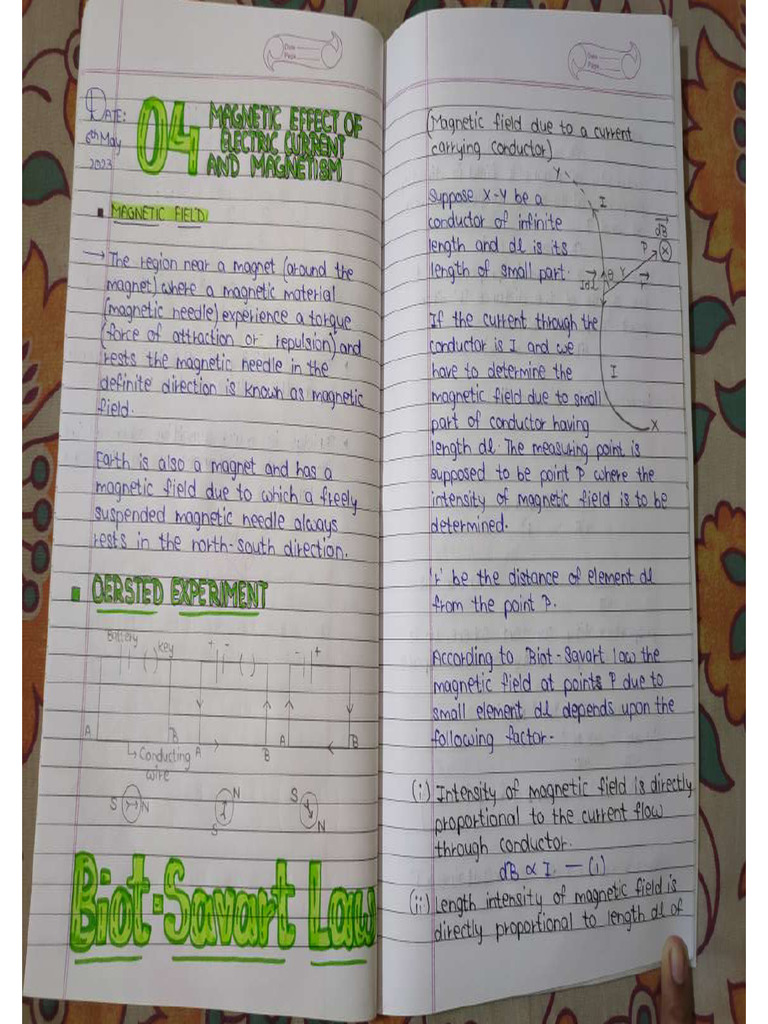 Date
Page
DATE:
6th May
2023
04
MAGNETIC EFFECT OF
ELECTRIC CURRENT
AND MAGNETISM
MAGNETIC FIELD
→ The region near a magnet (around the
magnet) where a magnetic material
(magnetic needle) experience a torque
(force of attraction or repulsion) and
rests the magnetic needle in the
definite direction is known as magnetic
field.
Earth is also a magnet and has a
magnetic field due to which a freely
suspended magnetic needle always
rests in the north-south direction.
OERSTED EXPERIMENT
Battery key + - - +
A B A B A B
↳ Conducting
wire
S N N S S N
Biot-Savart Law
Date
Page
(Magnetic field due to a current
carrying conductor)
Y
I
Suppose X-Y be a
conductor of infinite
length and dl is its
length of small part.
dB
P (x)
Idl θ r r
If the current through the
conductor is I and we
have to determine the
magnetic field due to small
part of conductor having
length dl. The measuring point is
supposed to be point P where the
intensity of magnetic field is to be
determined.
I
X
'r' be the distance of element dl
from the point P.
According to Biot-Savart law the
magnetic field at points P due to
small element dl depends upon the
following factor-
(i) Intensity of magnetic field is directly
proportional to the current flow
through conductor.
dB ∝ I — (1)
(ii) Length intensity of magnetic field is
directly proportional to length dl of